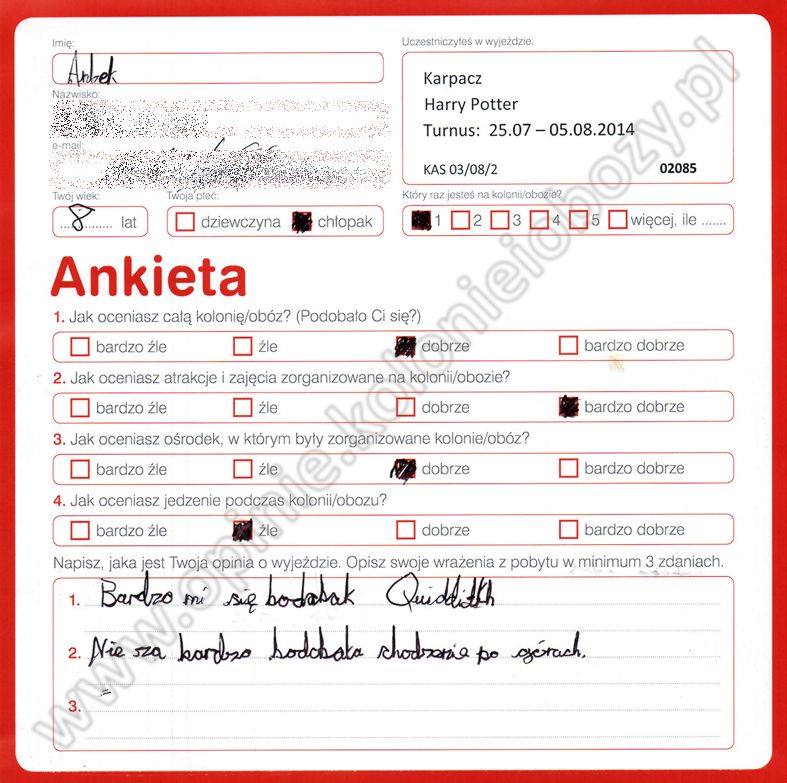 Imię:
Antek
Uczestniczyłeś w wyjeździe:
Karpacz
Harry Potter
Turnus: 25.07 – 05.08.2014
KAS 03/08/2 02085
Nazwisko:
e-mail:
Twój wiek:
...8........ lat
Twoja płeć:
dziewczyna chłopak
Który raz jesteś na kolonii/obozie?
1 2 3 4 5 więcej, ile .......
Ankieta
1. Jak oceniasz całą kolonię/obóz? (Podobało Ci się?)
bardzo źle źle dobrze bardzo dobrze
2. Jak oceniasz atrakcje i zajęcia zorganizowane na kolonii/obozie?
bardzo źle źle dobrze bardzo dobrze
3. Jak oceniasz ośrodek, w którym były zorganizowane kolonie/obóz?
bardzo źle źle dobrze bardzo dobrze
4. Jak oceniasz jedzenie podczas kolonii/obozu?
bardzo źle źle dobrze bardzo dobrze
Napisz, jaka jest Twoja opinia o wyjeździe. Opisz swoje wrażenia z pobytu w minimum 3 zdaniach.
1. Bardzo mi się
2. Nie bardzo chodzenie po górach.
3.
www.opinie.kolonieiobozy.pl